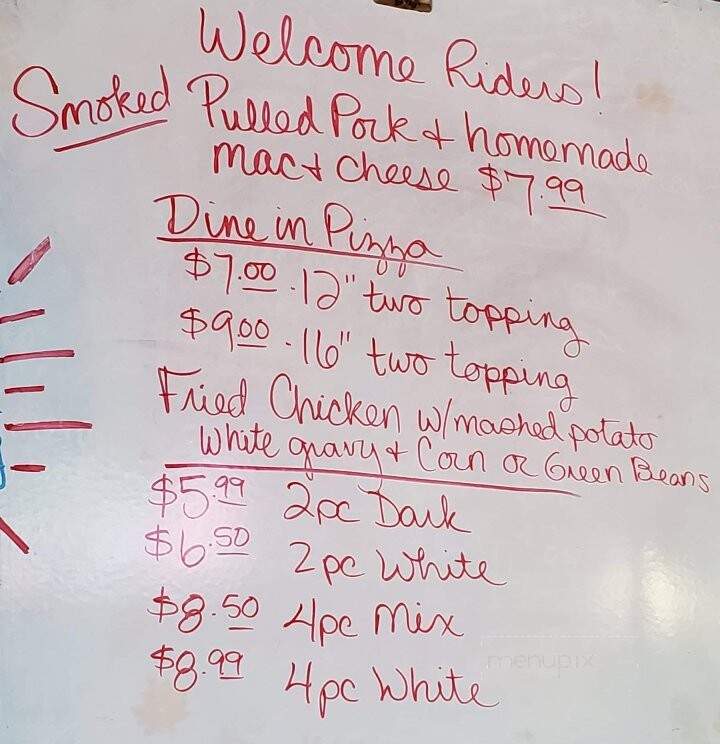 Welcome Riders!
Smoked Pulled Pork & homemade
mac & cheese $7.99
Dine in Pizza
$7.00 - 12" two topping
$9.00 - 16" two topping
Fried Chicken w/mashed potato
White gravy & Corn or Green Beans
$5.99 2pc Dark
$6.50 2pc White
$8.50 4pc Mix
$8.99 4pc White
menupix